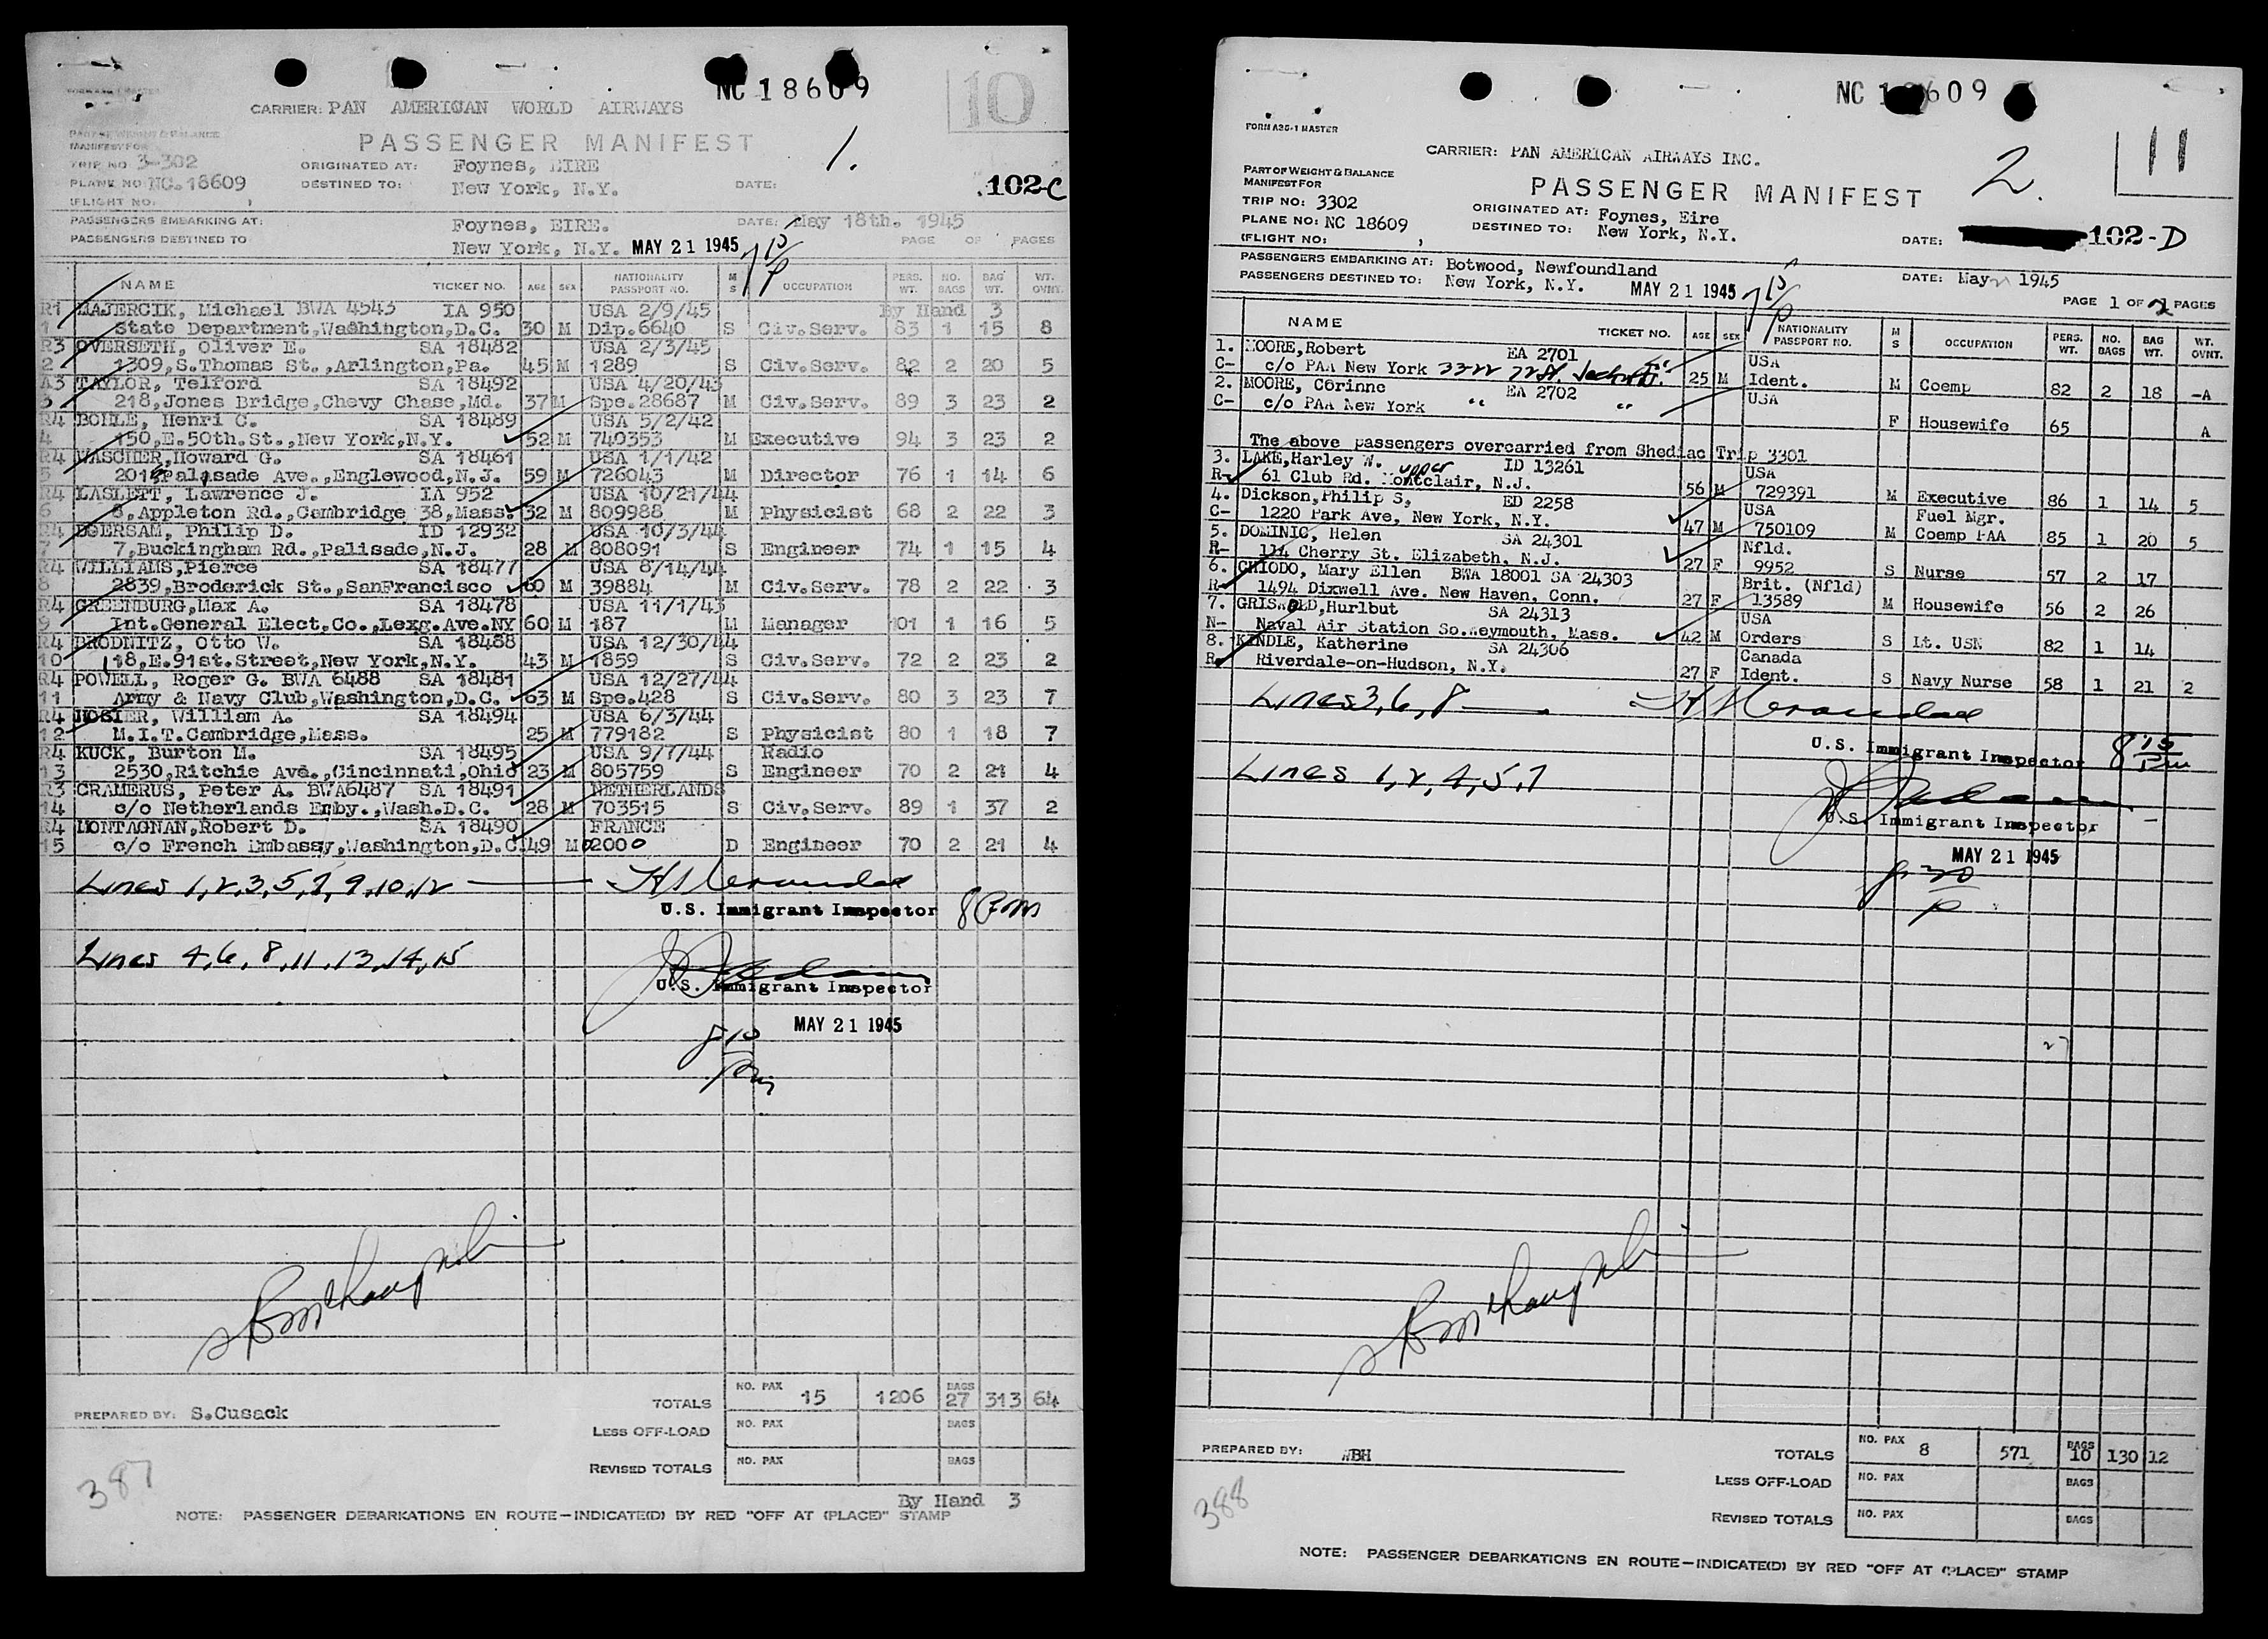 NC 18609
10
CARRIER: PAN AMERICAN WORLD AIRWAYS
PART OF WEIGHT & BALANCE
MANIFEST FOR
PASSENGER MANIFEST
1.
TRIP NO 3-302
ORIGINATED AT: Foynes, EIRE
PLANE NO NC.18609
DESTINED TO: New York, N.Y.
DATE:
102-C
(FLIGHT NO. )
PASSENGERS EMBARKING AT: Foynes, EIRE.
DATE: May 18th. 1945
PASSENGERS DESTINED TO New York, N.Y. MAY 21 1945
PAGE OF PAGES
NAME TICKET NO. AGE SEX NATIONALITY PASSPORT NO. M S OCCUPATION PERS. WT. NO. BAGS BAG WT. WT. OVNT.
R1 MAJERCIK, Michael BWA 4543 IA 950 USA 2/9/45 By Hand 3
1 State Department,Washington,D.C. 30 M Dip.6640 S Civ.Serv. 83 1 15 8
R3 OVERSETH, Oliver E. SA 18482 USA 2/3/45
2 1309,S.Thomas St.,Arlington,Pa. 45 M 1289 S Civ.Serv. 82 2 20 5
A3 TAYLOR, Telford SA 18492 USA 4/20/43
3 218,Jones Bridge,Chevy Chase,Md. 37 M Spe.28687 M Civ.Serv. 89 3 23 2
R4 BOHLE, Henri C. SA 18489 USA 5/2/42
4 150,E.50th.St.,New York,N.Y. 52 M 740353 M Executive 94 3 23 2
R4 WASCHER,Howard G. SA 18461 USA 1/1/42
5 201 Palisade Ave.,Englewood,N.J. 59 M 726043 M Director 76 1 14 6
R4 LASLETT, Lawrence J. IA 952 USA 10/21/44
6 8,Appleton Rd.,Cambridge 38,Mass 32 M 809988 M Physicist 68 2 22 3
R4 DOERSAM, Philip D. ID 12932 USA 10/3/44
7 7,Buckingham Rd.,Palisade,N.J. 28 M 808091 S Engineer 74 1 15 4
R4 WILLIAMS,Pierce SA 18477 USA 8/14/44
8 2839,Broderick St.,SanFrancisco 60 M 39884 M Civ.Serv. 78 2 22 3
R4 GREENBURG,Max A. SA 18478 USA 11/1/43
9 Int.General Elect,Co.,Lexg.Ave.NY 60 M 187 M Manager 101 1 16 5
R4 BRODNITZ, Otto W. SA 18488 USA 12/30/44
10 118,E.91st.Street,New York,N.Y. 43 M 1859 S Civ.Serv. 72 2 23 2
R4 POWELL, Roger G. BWA 6488 SA 18481 USA 12/27/44
11 Army & Navy Club,Washington,D.C. 63 M Spe.428 S Civ.Serv. 80 3 23 7
R4 HOSIER, William A. SA 18494 USA 6/3/44
12 M.I.T.Cambridge,Mass. 25 M 779182 S Physicist 80 1 18 7
R4 KUCK, Burton M. SA 18495 USA 9/7/44 Radio
13 2530,Ritchie Ave.,Cincinnati,Ohio 23 M 805759 S Engineer 70 2 21 4
R3 CRAMERUS, Peter A. BWA6487 SA 18491 NETHERLANDS
14 c/o Netherlands Emby.,Wash.D.C. 28 M 703515 S Civ.Serv. 89 1 37 2
R4 MONTAGNAN,Robert D. SA 18490 FRANCE
15 c/o French Embassy,Washington,D.C. 49 M 2000 D Engineer 70 2 21 4
Lines 1,2,3,5,7,9,10,12
U.S. Immigrant Inspector 8 Pm
Lines 4,6,8,11,13,14,15
U.S. Immigrant Inspector
MAY 21 1945
8 10
Pm
TOTALS NO. PAX 15 1206 BAGS 27 313 64
PREPARED BY: S.Cusack
LESS OFF-LOAD NO. PAX BAGS
REVISED TOTALS NO. PAX BAGS
387
By Hand 3
NOTE: PASSENGER DEBARKATIONS EN ROUTE—INDICATE(D) BY RED "OFF AT (PLACE)" STAMP
NC 18609
11
FORM A26-1 MASTER
CARRIER: PAN AMERICAN AIRWAYS INC.
2.
PART OF WEIGHT & BALANCE
MANIFEST FOR
PASSENGER MANIFEST
TRIP NO: 3302
ORIGINATED AT: Foynes, Eire
PLANE NO: NC 18609
DESTINED TO: New York, N.Y.
DATE: 102-D
(FLIGHT NO: )
PASSENGERS EMBARKING AT: Botwood, Newfoundland
DATE: May 1945
PASSENGERS DESTINED TO: New York, N.Y. MAY 21 1945
PAGE 1 OF 2 PAGES
NAME TICKET NO. AGE SEX NATIONALITY PASSPORT NO. M S OCCUPATION PERS. WT. NO. BAGS BAG WT. WT. OVNT.
1. MOORE,Robert EA 2701 USA
C- c/o PAA New York 25 M Ident. M Coemp 82 2 18 -A
2. MOORE, Corinne EA 2702 USA
C- c/o PAA New York " " F Housewife 65 A
The above passengers overcarried from Shediac Trip 3301
3. LAKE,Harley W. ID 13261 USA
R- 61 Club Rd. upper Montclair, N.J. 56 M 729391 M Executive 86 1 14 5
4. Dickson,Philip S, ED 2258 USA Fuel Mgr.
C- 1220 Park Ave, New York, N.Y. 47 M 750109 M Coemp PAA 85 1 20 5
5. DOMINIC, Helen SA 24301 Nfld.
R- 114 Cherry St. Elizabeth, N.J. 27 F 9952 S Nurse 57 2 17
6. CHIODO, Mary Ellen BWA 18001 SA 24303 Brit. (Nfld)
R- 1494 Dixwell Ave. New Haven, Conn. 27 F 13589 M Housewife 56 2 26
7. GRISWOLD,Hurlbut SA 24313 USA
N- Naval Air Station So.Weymouth, Mass. 42 M Orders S Lt. USN 82 1 14
8. KINDLE, Katherine SA 24306 Canada
R Riverdale-on-Hudson, N.Y. 27 F Ident. S Navy Nurse 58 1 21 2
Lines 3,6,8
U.S. Immigrant Inspector 8 15 Pm
Lines 1,2,4,5,7
U.S. Immigrant Inspector
MAY 21 1945
8 20
P
TOTALS NO. PAX 8 571 BAGS 10 130 12
PREPARED BY: WBH
LESS OFF-LOAD NO. PAX BAGS
REVISED TOTALS NO. PAX BAGS
388
NOTE: PASSENGER DEBARKATIONS EN ROUTE—INDICATE(D) BY RED "OFF AT (PLACE)" STAMP